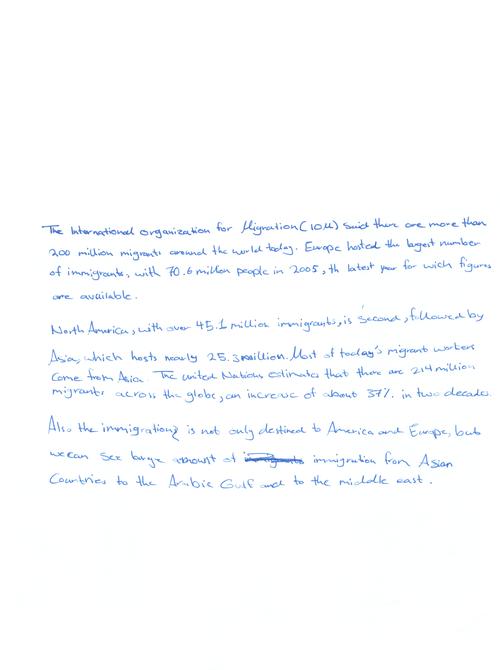 The International organization for Migration (IOM) said there are more than
200 million migrants around the world today. Europe hosted the largest number
of immigrants, with 70.6 million people in 2005, th latest year for wich figures
are available.
North America, with over 45.1 million immigrants, is second, followed by
Asia, which hosts nearly 25.3 million. Most of today's migrant workers
Come from Asia. The united Nations estimates that there are 214 million
migrants across the globe, an increase of about 37% in two decades.
Also the immigrations is not only destined to America and Europe, but
we can see large amount of immigration from Asian
Countries to the Arabic Gulf and to the middle east.